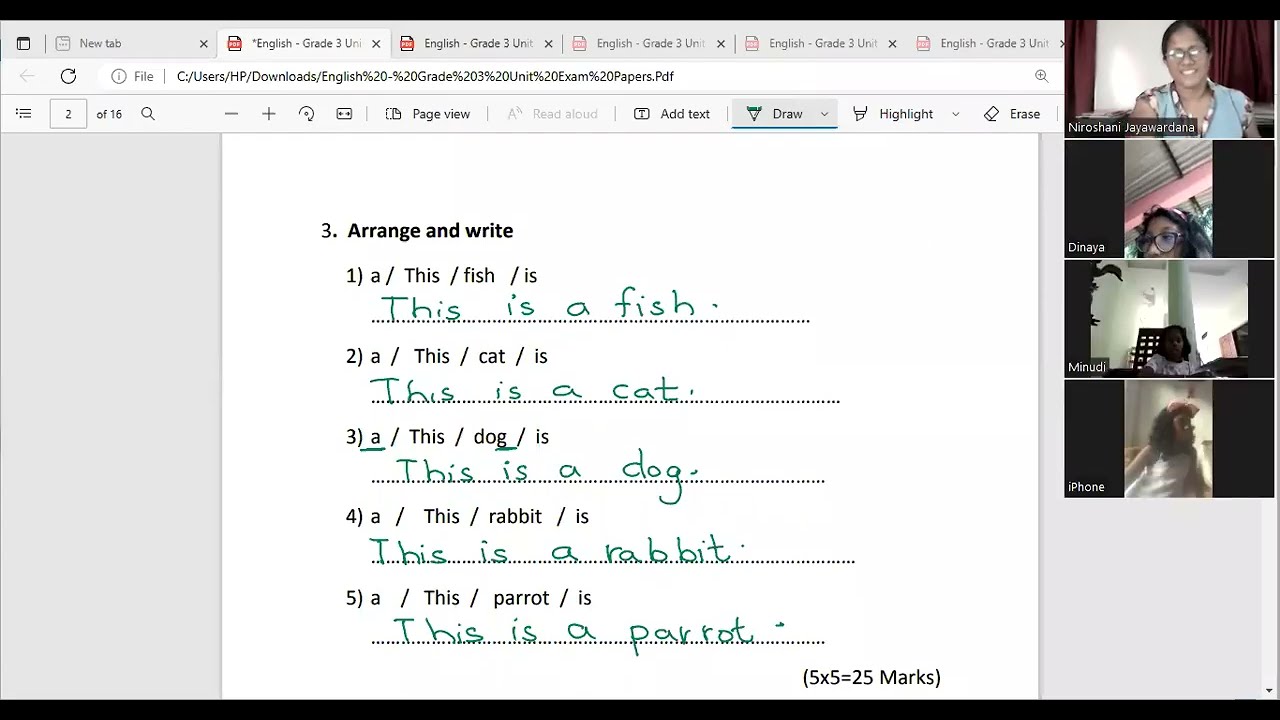 New tab
*English - Grade 3 Uni
English - Grade 3 Unit
English - Grade 3 Unit
English - Grade 3 Unit
English - Grade 3 Unit
File C:/Users/HP/Downloads/English%20-%20Grade%203%20Unit%20Exam%20Papers.Pdf
2 of 16 Page view Read aloud Add text Draw Highlight Erase
Niroshani Jayawardana
Dinaya
Minudi
iPhone
3. Arrange and write
1) a / This / fish / is
This is a fish.
2) a / This / cat / is
This is a cat.
3) a / This / dog / is
This is a dog.
4) a / This / rabbit / is
This is a rabbit.
5) a / This / parrot / is
This is a parrot.
(5x5=25 Marks)